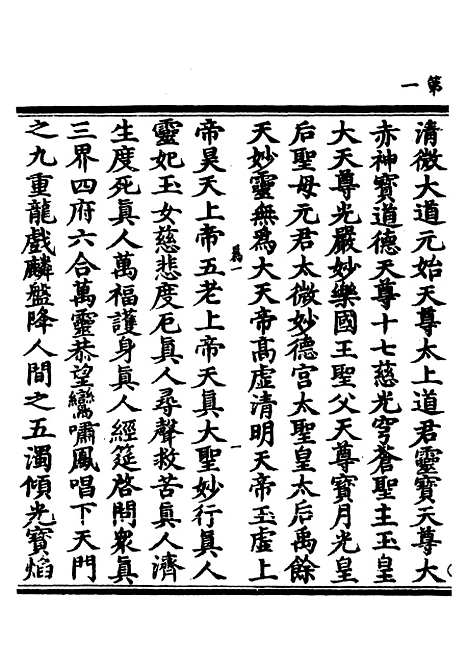 第一
清微大道元始天尊太上道君靈寶天尊大
赤神寶道德天尊十七慈光穹蒼聖主玉皇
大天尊光嚴妙樂國王聖父天尊寶月光皇
后聖母元君太微妙德宮太聖皇太后禹餘
天妙靈無爲大天帝高虛清明天帝玉虛上
爲一 一
帝昊天上帝五老上帝天真大聖妙行真人
靈妃玉女慈悲度厄真人尋聲救苦真人濟
生度死真人萬福護身真人經筵啓問衆真
三界四府六合萬靈恭望鸞嘯鳳唱下天門
之九重龍戲麟盤降人間之五濁傾光寶焰